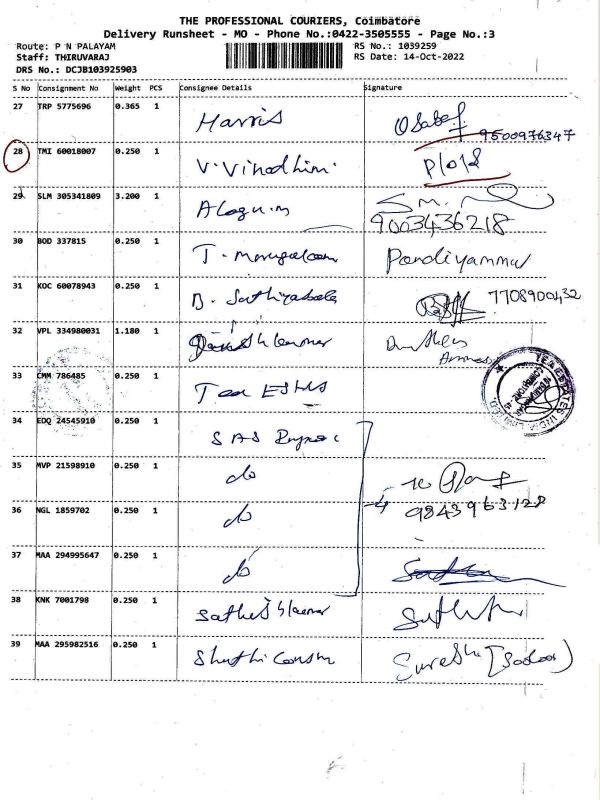 THE PROFESSIONAL COURIERS, Coimbatore
Delivery Runsheet - MO - Phone No.:0422-3505555 - Page No.:3
Route: P N PALAYAM
RS No.: 1039259
Staff: THIRUVARAJ
RS Date: 14-Oct-2022
DRS No.: DCJB103925903
S No Consignment No Weight PCS Consignee Details Signature
27 TRP 5775696 0.365 1 Harris
9500976347
28 TMI 60018007 0.250 1 V. Vinodhini
29 SLM 305341809 3.200 1 Alagu.m S.M.
9003436218
30 BOD 337815 0.250 1 T. Pandiyammal
31 KOC 60078943 0.250 1 B. Sathiyabala 7708900432
32 VPL 334980031 1.180 1
33 CMM 786485 0.250 1 Tea
34 EDQ 24545910 0.250 1 SAS
35 MVP 21598910 0.250 1 do
36 NGL 1859702 0.250 1 do 9843963128
37 MAA 294995647 0.250 1 do
38 KNK 7001798 0.250 1
39 MAA 295982516 0.250 1 Suresh